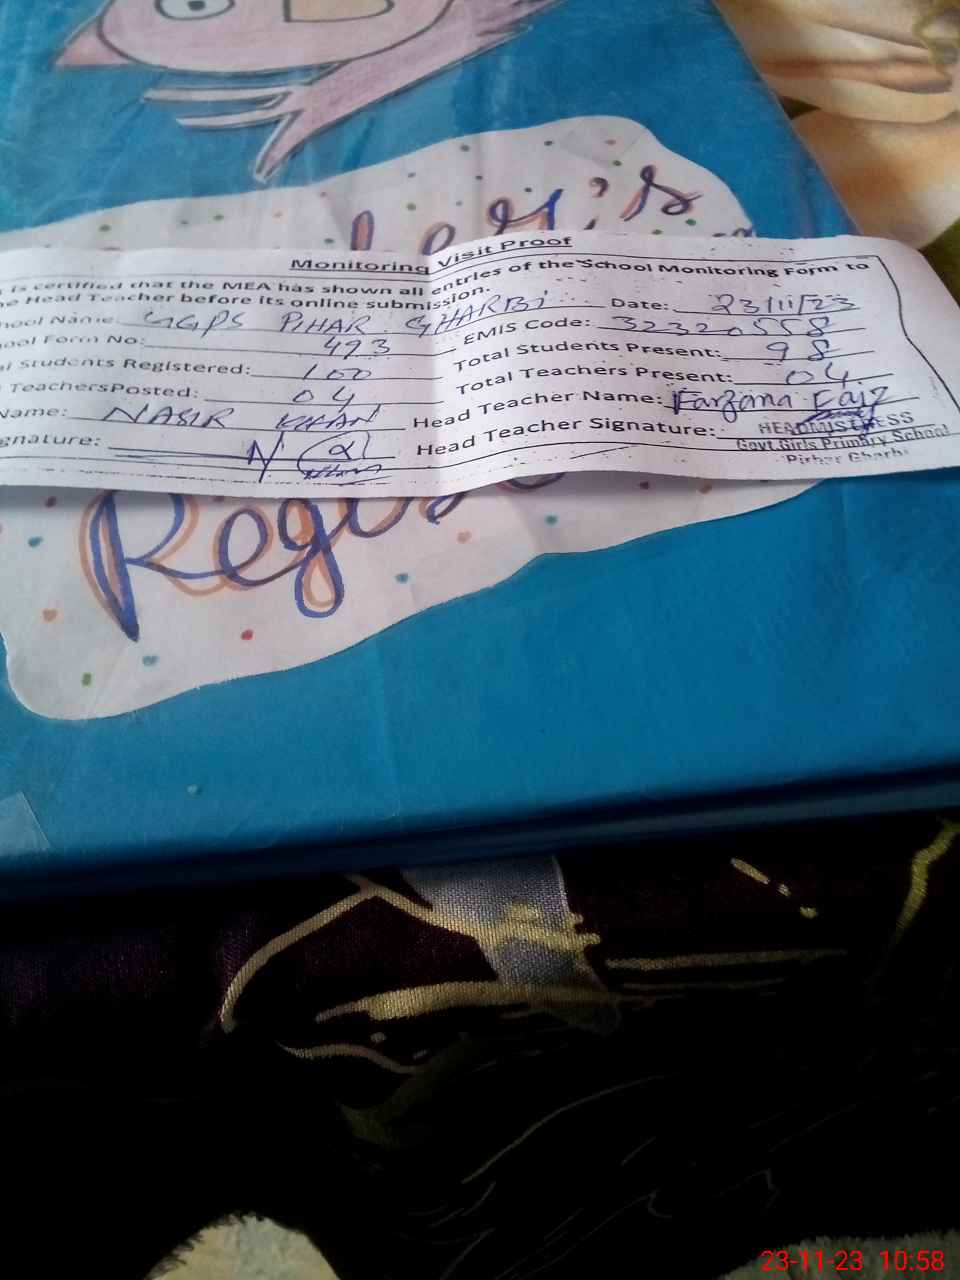 Monitoring Visit Proof
is certified that the MEA has shown all entries of the School Monitoring Form to
Head Teacher before its online submission.
Name: GGPS PIHAR GHARBI Date: 23/11/23
Form No: 493 EMIS Code: 32320558
Students Registered: 100 Total Students Present: 98
TeachersPosted: 04 Total Teachers Present: 04
Name: NASIR KHAN Head Teacher Name: Farzana Faiz
Head Teacher Signature:
HEADMISTRESS
Govt. Girls Primary School
Pirhar Gharbi
23-11-23 10:58